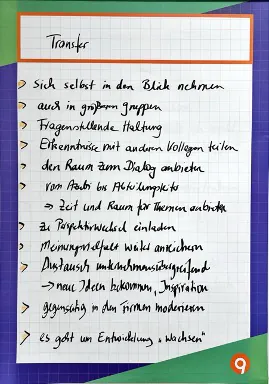 Transfer
sich selbst in den Blick nehmen
auch in größeren Gruppen
Fragenstellende Haltung
Erkenntnisse mit anderen Kollegen teilen
den Raum zum Dialog anbieten
vom Azubi bis Abteilungsleiter
→ Zeit und Raum für Themen anbieten
zu Perspektivwechsel einladen
Meinungsvielfalt weiter anreichern
Austausch unternehmensübergreifend
→ neue Ideen bekommen, Inspiration
gegenseitig in den Firmen moderieren
es geht um Entwicklung „Wachsen"
9